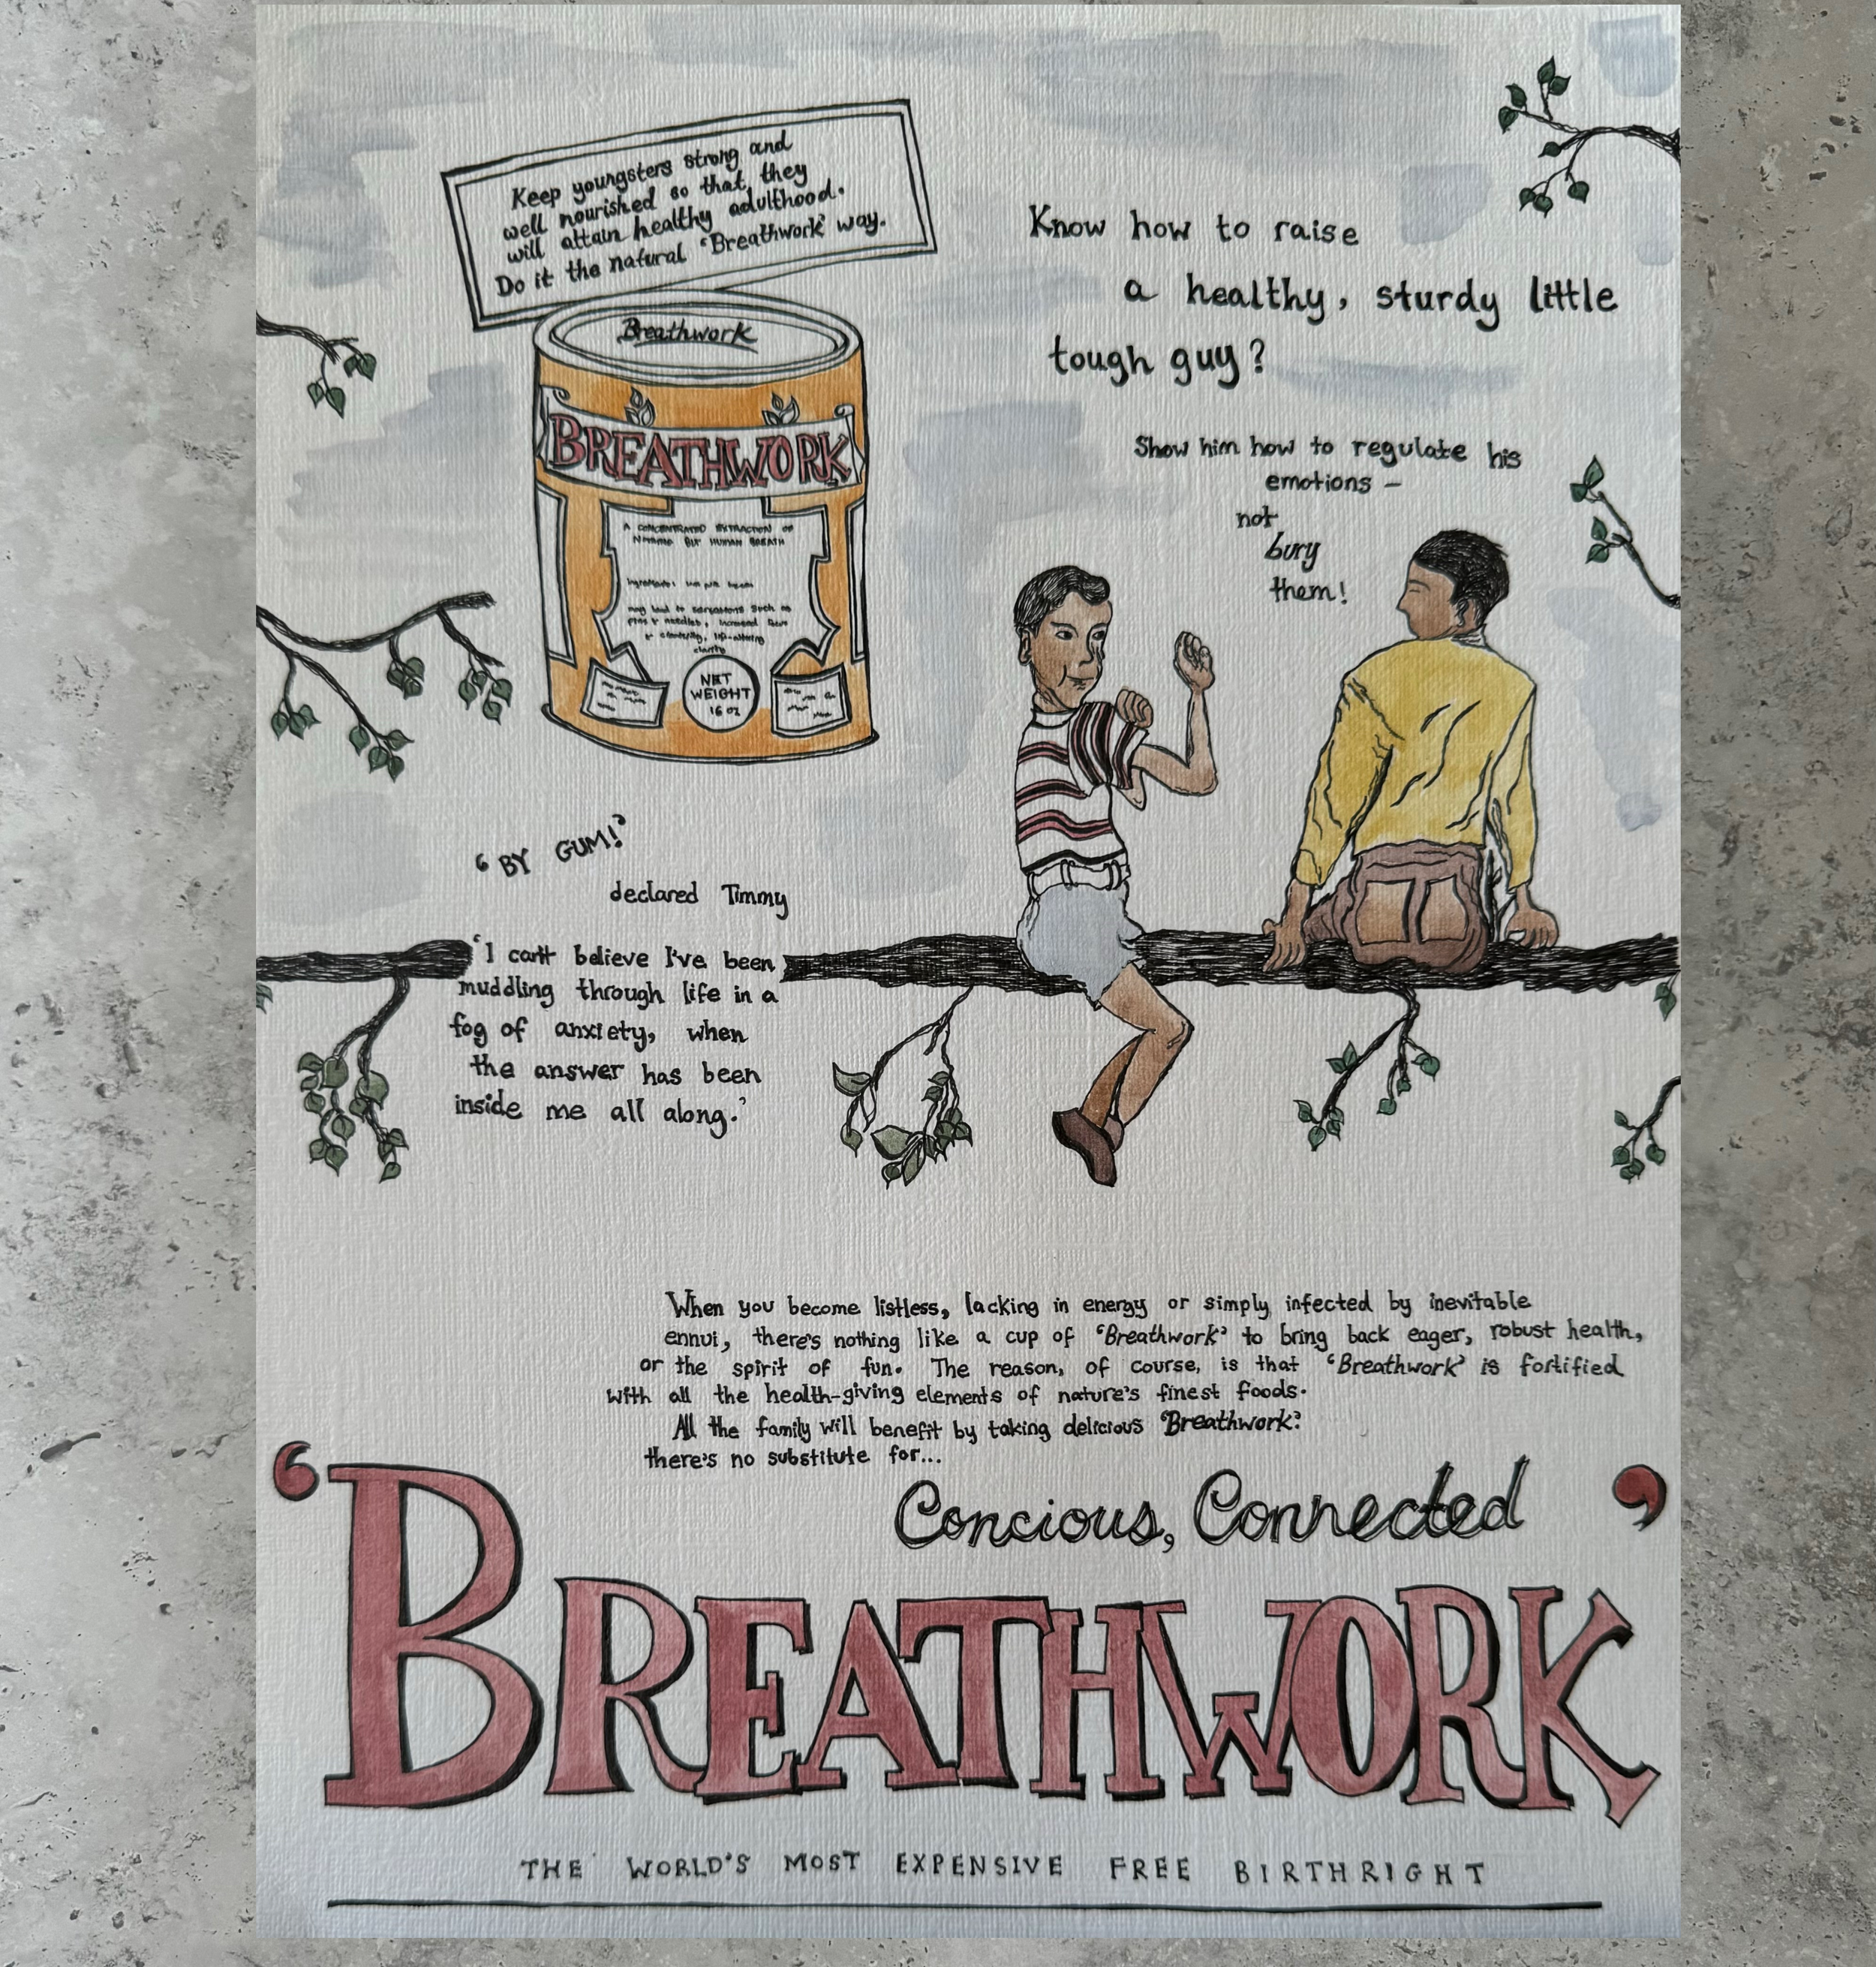 Keep youngsters strong and
well nourished so that they
will attain healthy adulthood.
Do it the natural 'Breathwork' way.
Know how to raise
a healthy, sturdy little
tough guy?
Breathwork
BREATHWORK
A CONCENTRATED EXTRACTION OF
BUT HUMAN BREATH
Ingredients:
may lead to sensations such as
pins & needles, increased
& life-altering
clarity
NET
WEIGHT
16 oz
Show him how to regulate his
emotions –
not
bury
them!
'BY GUM!'
declared Timmy
'I can't believe I've been
muddling through life in a
fog of anxiety, when
the answer has been
inside me all along.'
When you become listless, lacking in energy or simply infected by inevitable
ennui, there's nothing like a cup of 'Breathwork' to bring back eager, robust health,
or the spirit of fun. The reason, of course, is that 'Breathwork' is fortified
with all the health-giving elements of nature's finest foods.
All the family will benefit by taking delicious 'Breathwork'
there's no substitute for...
Concious, Connected
'BREATHWORK'
THE WORLD'S MOST EXPENSIVE FREE BIRTHRIGHT